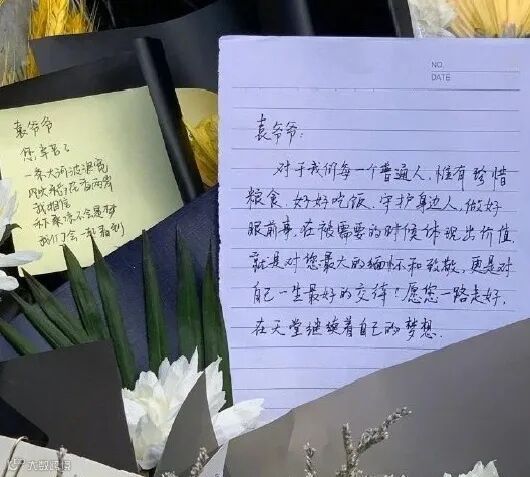 袁爷爷
您辛苦了
一条大河波浪宽
风吹稻花香两岸
我相信
禾下乘凉不会是梦
我们会一起
NO.
DATE
袁爷爷:
对于我们每一个普通人,惟有珍惜
粮食、好好吃饭、守护身边人,做好
眼前事,在被需要的时候体现出价值,
就是对您最大的缅怀和致敬,更是对
自己一生最好的交待!愿您一路走好,
在天堂继续着自己的梦想.
大数跨境